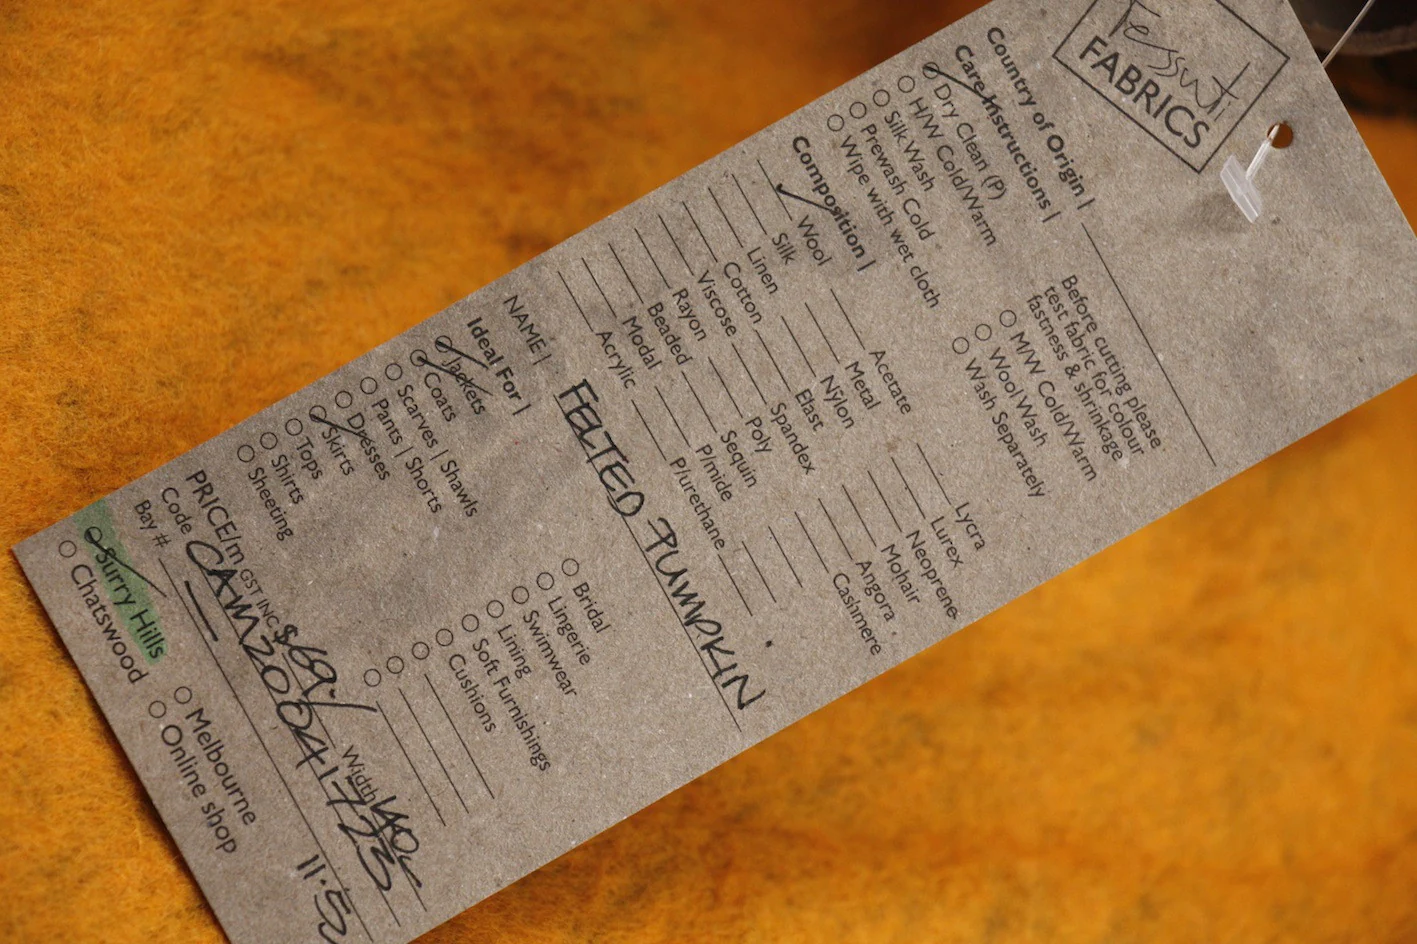 Tessuti
FABRICS
Country of Origin |
Care Instructions |
Dry Clean (P)
H/W Cold/Warm
Silk Wash
Prewash Cold
Wipe with wet cloth
Before cutting please
test fabric for colour
fastness & shrinkage
M/W Cold/Warm
Wool Wash
Wash Separately
Composition |
Wool Acetate Lycra
Silk Metal Lurex
Linen Nylon Neoprene
Cotton Elast Mohair
Viscose Spandex Angora
Rayon Poly Cashmere
Beaded Sequin
Modal P/mide
Acrylic P/urethane
NAME | FELTED PUMPKIN
Ideal For |
Jackets
Coats
Scarves | Shawls
Pants | Shorts
Dresses
Skirts
Tops
Shirts
Sheeting
Bridal
Lingerie
Swimwear
Lining
Soft Furnishings
Cushions
PRICE/m GST INC $69./ Width 140
Code CAM20041723
Bay # 11.5
Surry Hills Melbourne
Chatswood Online shop